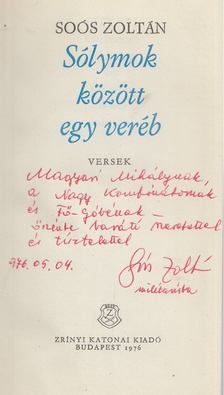 SOÓS ZOLTÁN
Sólymok
között
egy veréb
VERSEK
Magyari Mihálynak,
a Nagy Kombinátornak
és Fő-góbénak –
őszinte baráti szeretettel
és tisztelettel
976. 05. 04.
Soós Zoltán
Z
ZRÍNYI KATONAI KIADÓ
BUDAPEST 1976